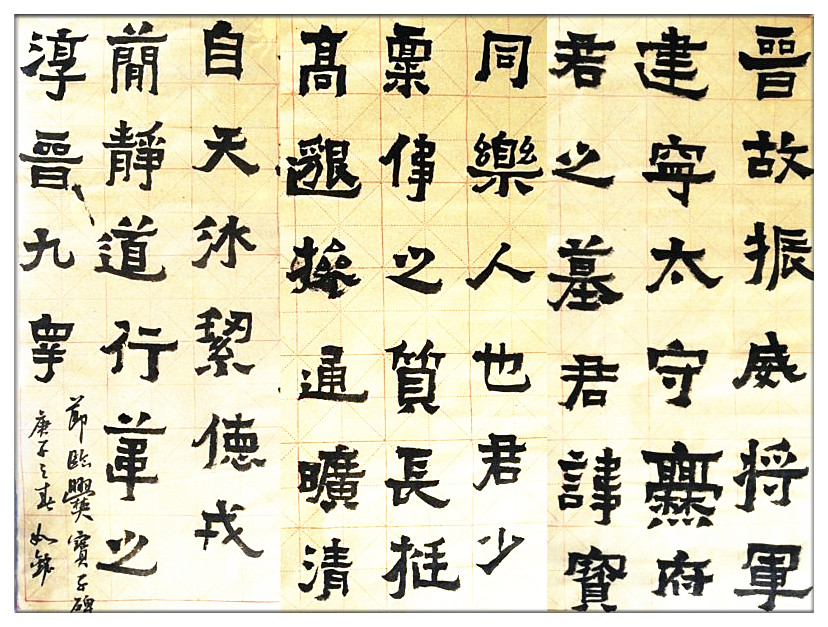 晉故振威将軍
建寧太守爨府
君之墓君諱寶
同樂人也君少
稟偉之質長挺
高邈操通曠清
自天冰絜德戎
簡靜道行葦之
淳晉九皋
節臨爨寶子碑
庚子之春